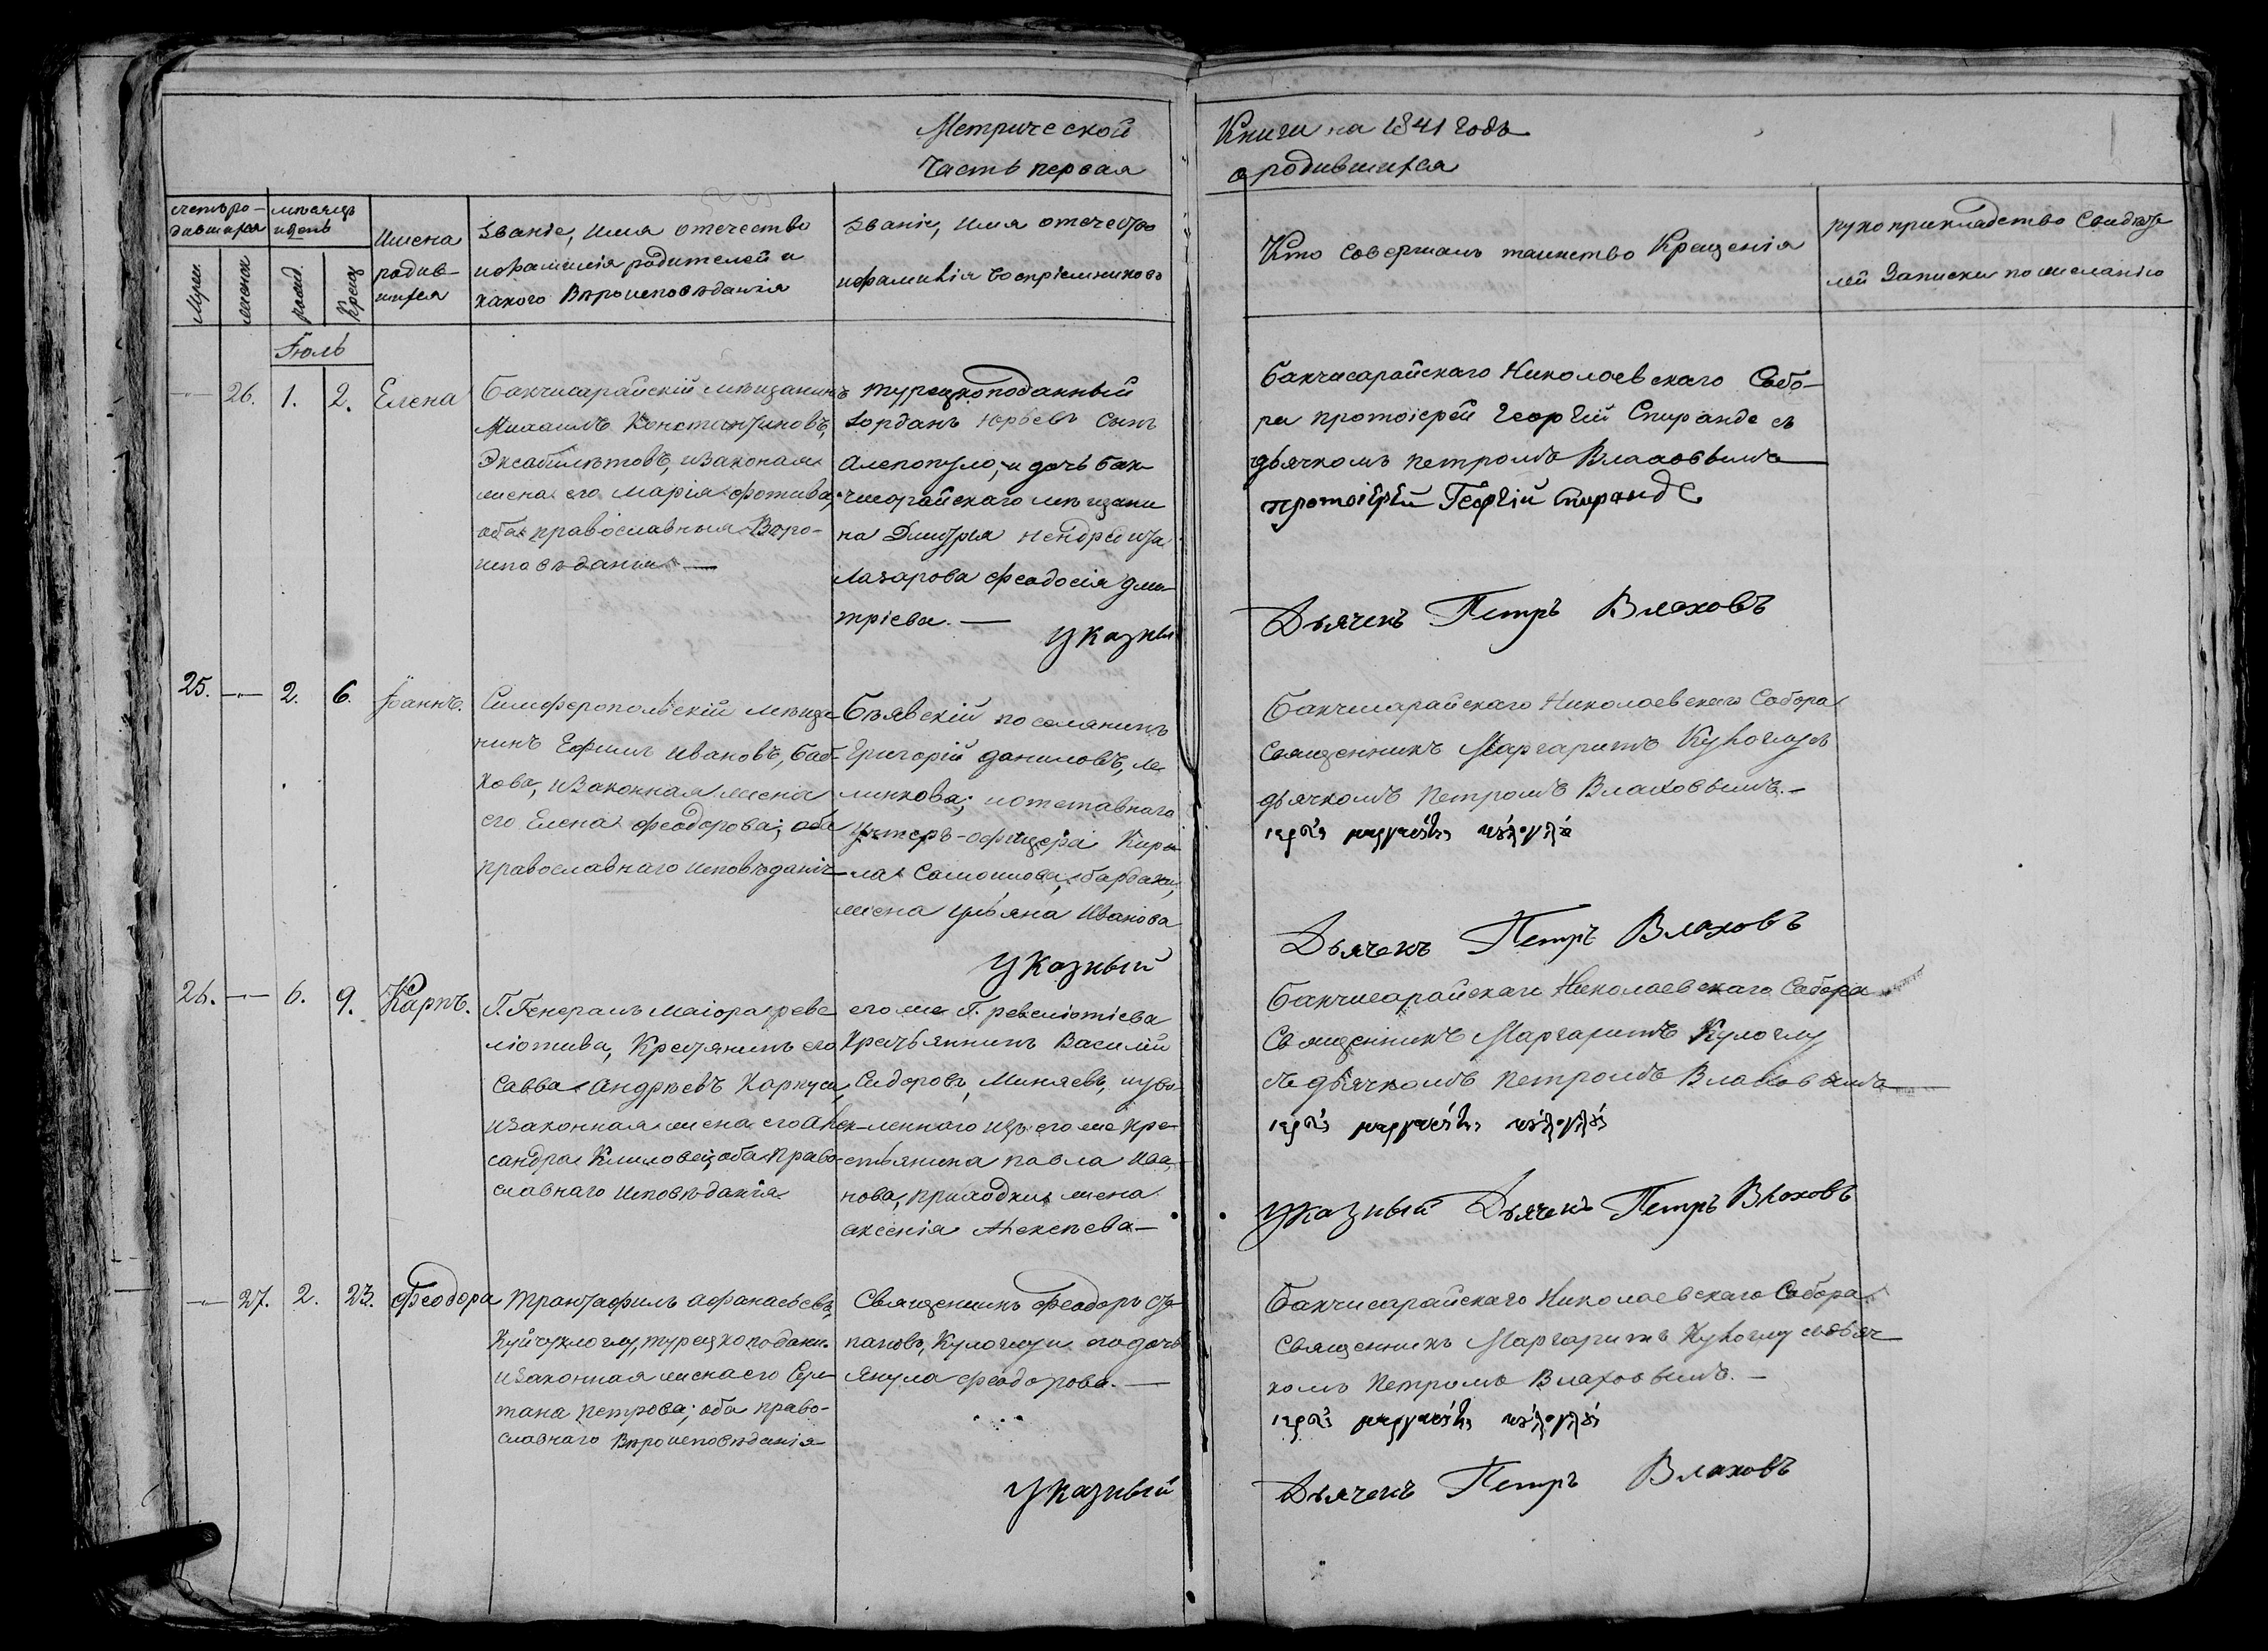 Метрической
Часть первая
Книги на 1841 годъ
о родившихся
счетъ ро-
дившихся
мѣсяцъ
и день
Имена
родив-
шихся
Званіе, имя отечество
и фамилія родителей и
какого Вѣроисповѣданія
Званіе, имя отечество
и фамилія воспріемниковъ
Кто совершалъ таинство Крещенія
рукоприкладство Свидѣте
лей Записки по желанію
муж.
женск
рожд.
Крещ
Іюль
26. 1. 2. Елена
Бакчисарайскій мѣщанинъ
Михаилъ Константиновъ,
и законная
жена его Марія Фотива,
оба православныя Вѣро-
исповѣданія. —
турецкоподанный
Іорданъ Юрьевъ сынъ
Алепопуло, и дочь Бак-
чисарайскаго мѣщани
на Дмитрія
Лазарова Феодосія Дми-
тріева. —
Указный
Бакчисарайскаго Николаевскаго Собо-
ра протоіерей Георгій Спиранде съ
дьячкомъ Петромъ Влаховымъ
протоіерей Георгій Спиранде
Дьячекъ Петръ Влаховъ
25. —„— 2. 6. Іоаннъ.
Симферопольскій мѣща-
нинъ Ефимъ Ивановъ, Баб-
кова, и законная жена
его Елена Феодорова; оба
православнаго исповѣданія
поселянинъ
Григорій Даниловъ, Ме
линкова; и отставнаго
Унтеръ-офицера Кири-
ла Самоилова,
жена Ульяна Иванова
Указный
Бакчисарайскаго Николаевскаго Собора
Священникъ Маргаритъ Кулоглу съ
дьячкомъ Петромъ Влаховымъ. —
Дьячекъ Петръ Влаховъ
26. —„— 6. 9. Карпъ.
Г. Генералъ Маіора Реве
ліотива, Крестянинъ его
Савва Андреевъ Карпуси,
и законная жена его Алек-
сандра оба Право-
славнаго исповѣданія
его же Г. Ревеліотіева
Крестьянинъ Василій
Сидоровъ, Миняевъ, и уво-
леннаго изъ его же кре-
стьянина Павла Ива-
нова, Приходки жена
Аксенія Алексѣева —
Бакчисарайскаго Николаевскаго Собора
Священникъ Маргаритъ Кулоглу
съ дьячкомъ Петромъ Влаховымъ
Указный Дьячекъ Петръ Влаховъ
—„— 27. 2. 23. Феодора
Трантафилъ Афанасьевъ,
турецкоподанн.
и законная жена его Сул-
тана Петрова; оба право-
славнаго Вѣроисповѣданія
Священникъ Феодоръ Сте-
пановъ, Кулоглу и его дочь
Янула Феодорова. —
Указный
Бакчисарайскаго Николаевскаго Собора
Священникъ Маргаритъ Кулоглу съ дьяч
комъ Петромъ Влаховымъ. —
Дьячекъ Петръ Влаховъ